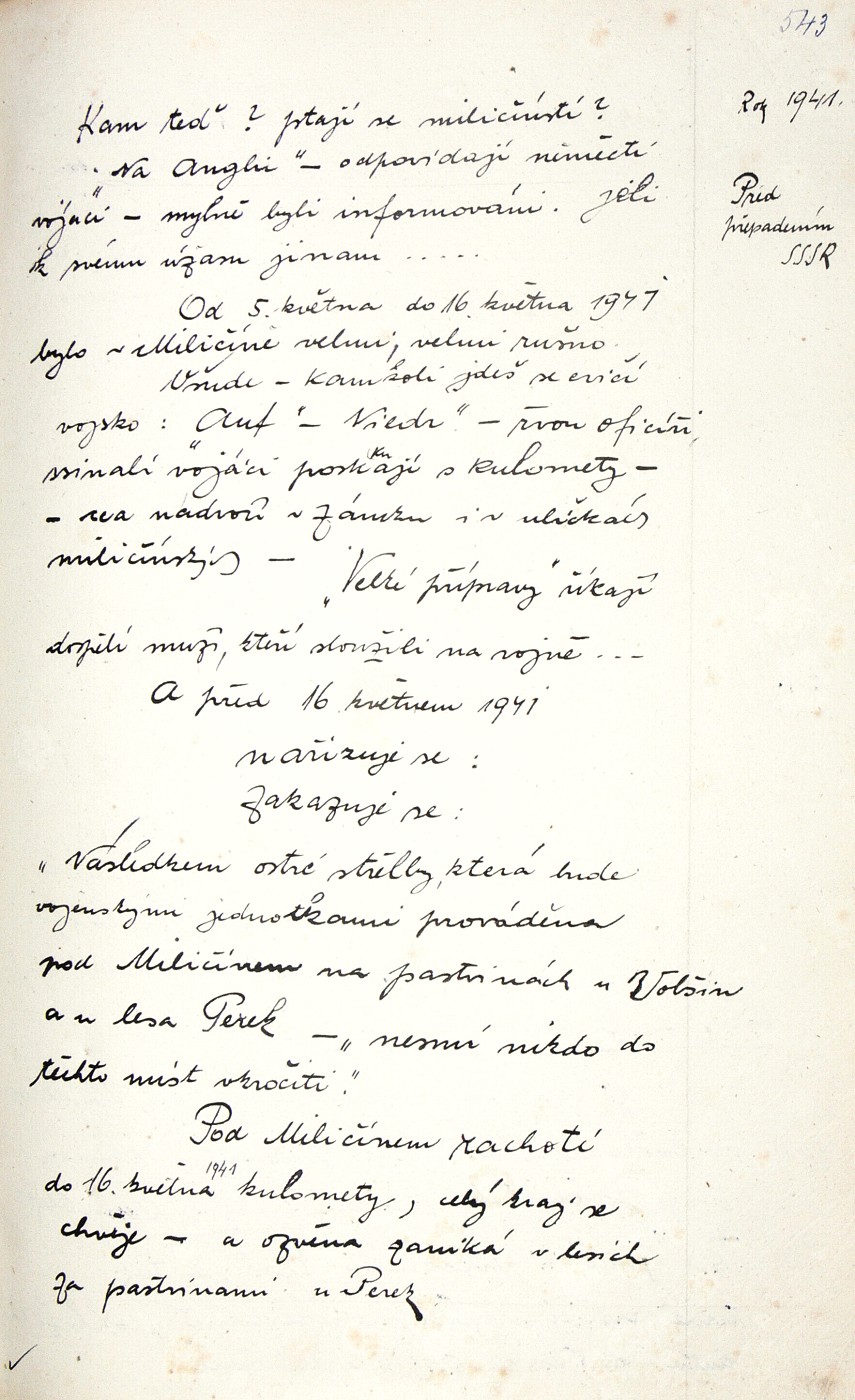 543
Rok 1941.
Kam teď? ptají se miličínští?
„Na Anglii" – odpovídají němečtí
Před
vojáci – mylně byli informováni. Jeli
přepadením
k svému úžasu jinam .....
SSSR
Od 5. května do 16. května 1941
bylo v Miličíně velmi, velmi rušno.
Všude – kamkoli jdeš se cvičí
vojsko: „Auf" – Niedr" – řvou oficíři,
usínalí vojáci poskakují s kulomety –
– na nádvoří v zámku i v uličkách
miličínských –
„Velké přípravy" říkají
dospělí muži, kteří sloužili na vojně ...
A před 16 květnem 1941
nařizuje se:
Zakazuje se:
„Následkem ostré střelby, která bude
vojenskými jednotkami prováděna
pod Miličínem na pastvinách u Volšin
a u lesa Perek – „nesmí nikdo do
těchto míst vkročiti."
Pod Miličínem rachotí
do 16. května 1941 kulomety, celý kraj se
chvěje – a ozvěna zaniká v lesích
za pastvinami u Perek